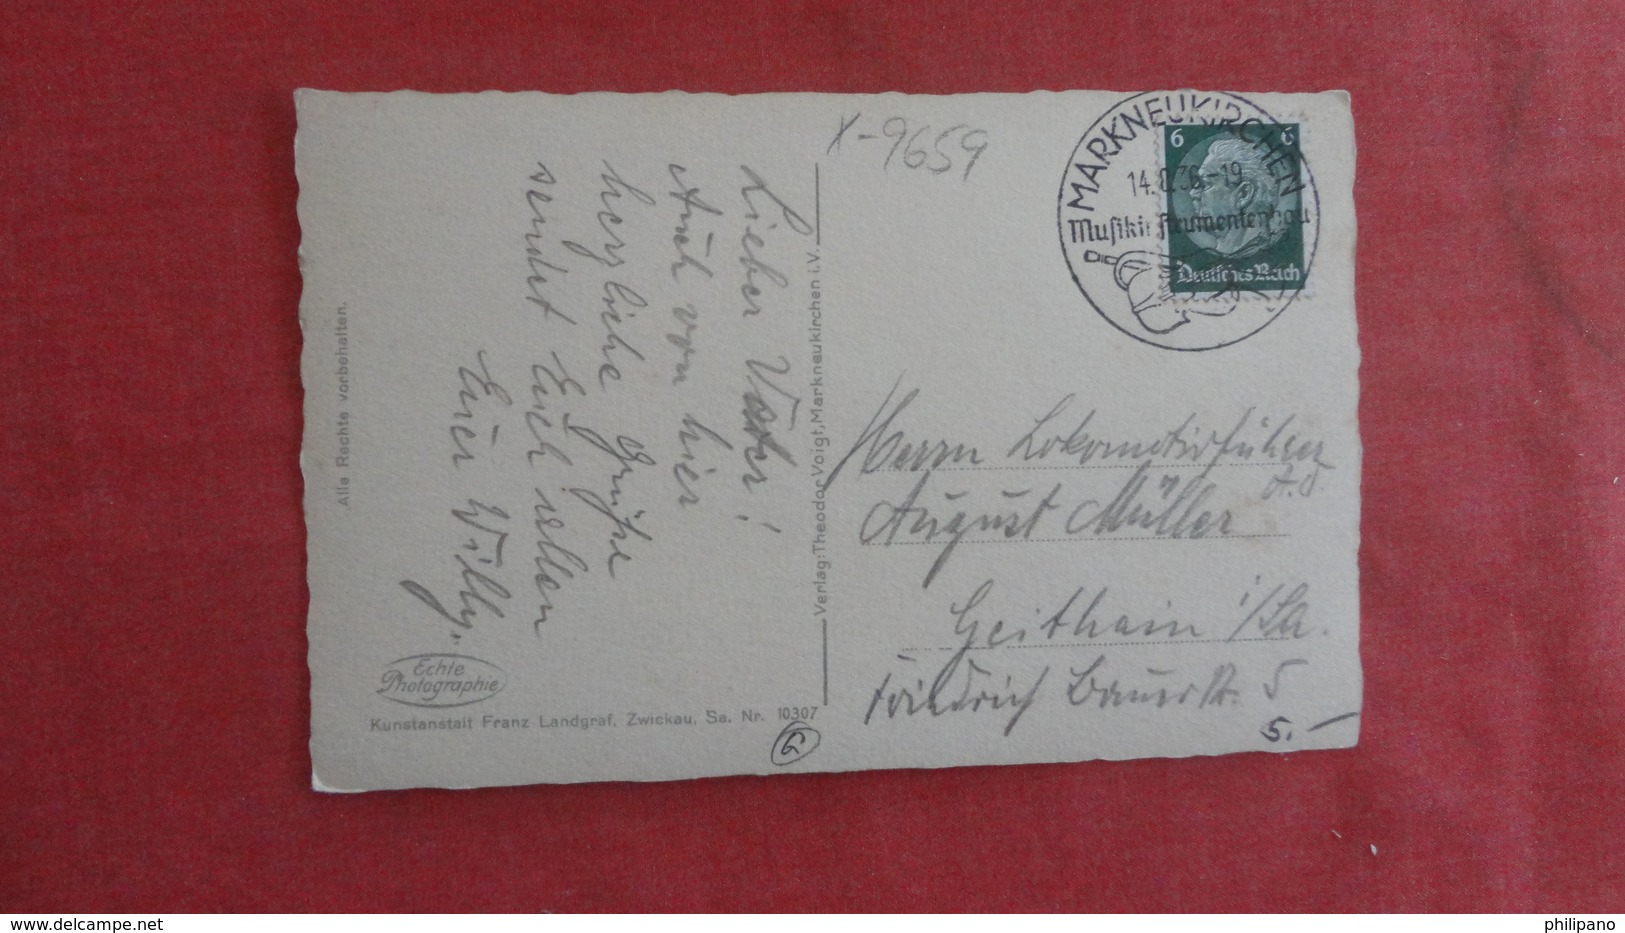 Lieber Vater!
Auch von hier
herzliche Grüße
sendet Euch allen
Euer Willy.
Alle Rechte vorbehalten.
Echte
Photographie
Kunstanstalt Franz Landgraf, Zwickau, Sa. Nr. 10307
G
Verlag: Theodor Voigt, Markneukirchen i.V.
X-9659
MARKNEUKIRCHEN
14. -19
Musikinstrumentenbau
6 6
Deutsches Reich
Herrn Lokomotivführer
August Müller
Geithain i/Sa.
Friedrich Bauerstr. 5
5.-
www.delcampe.net
philipano